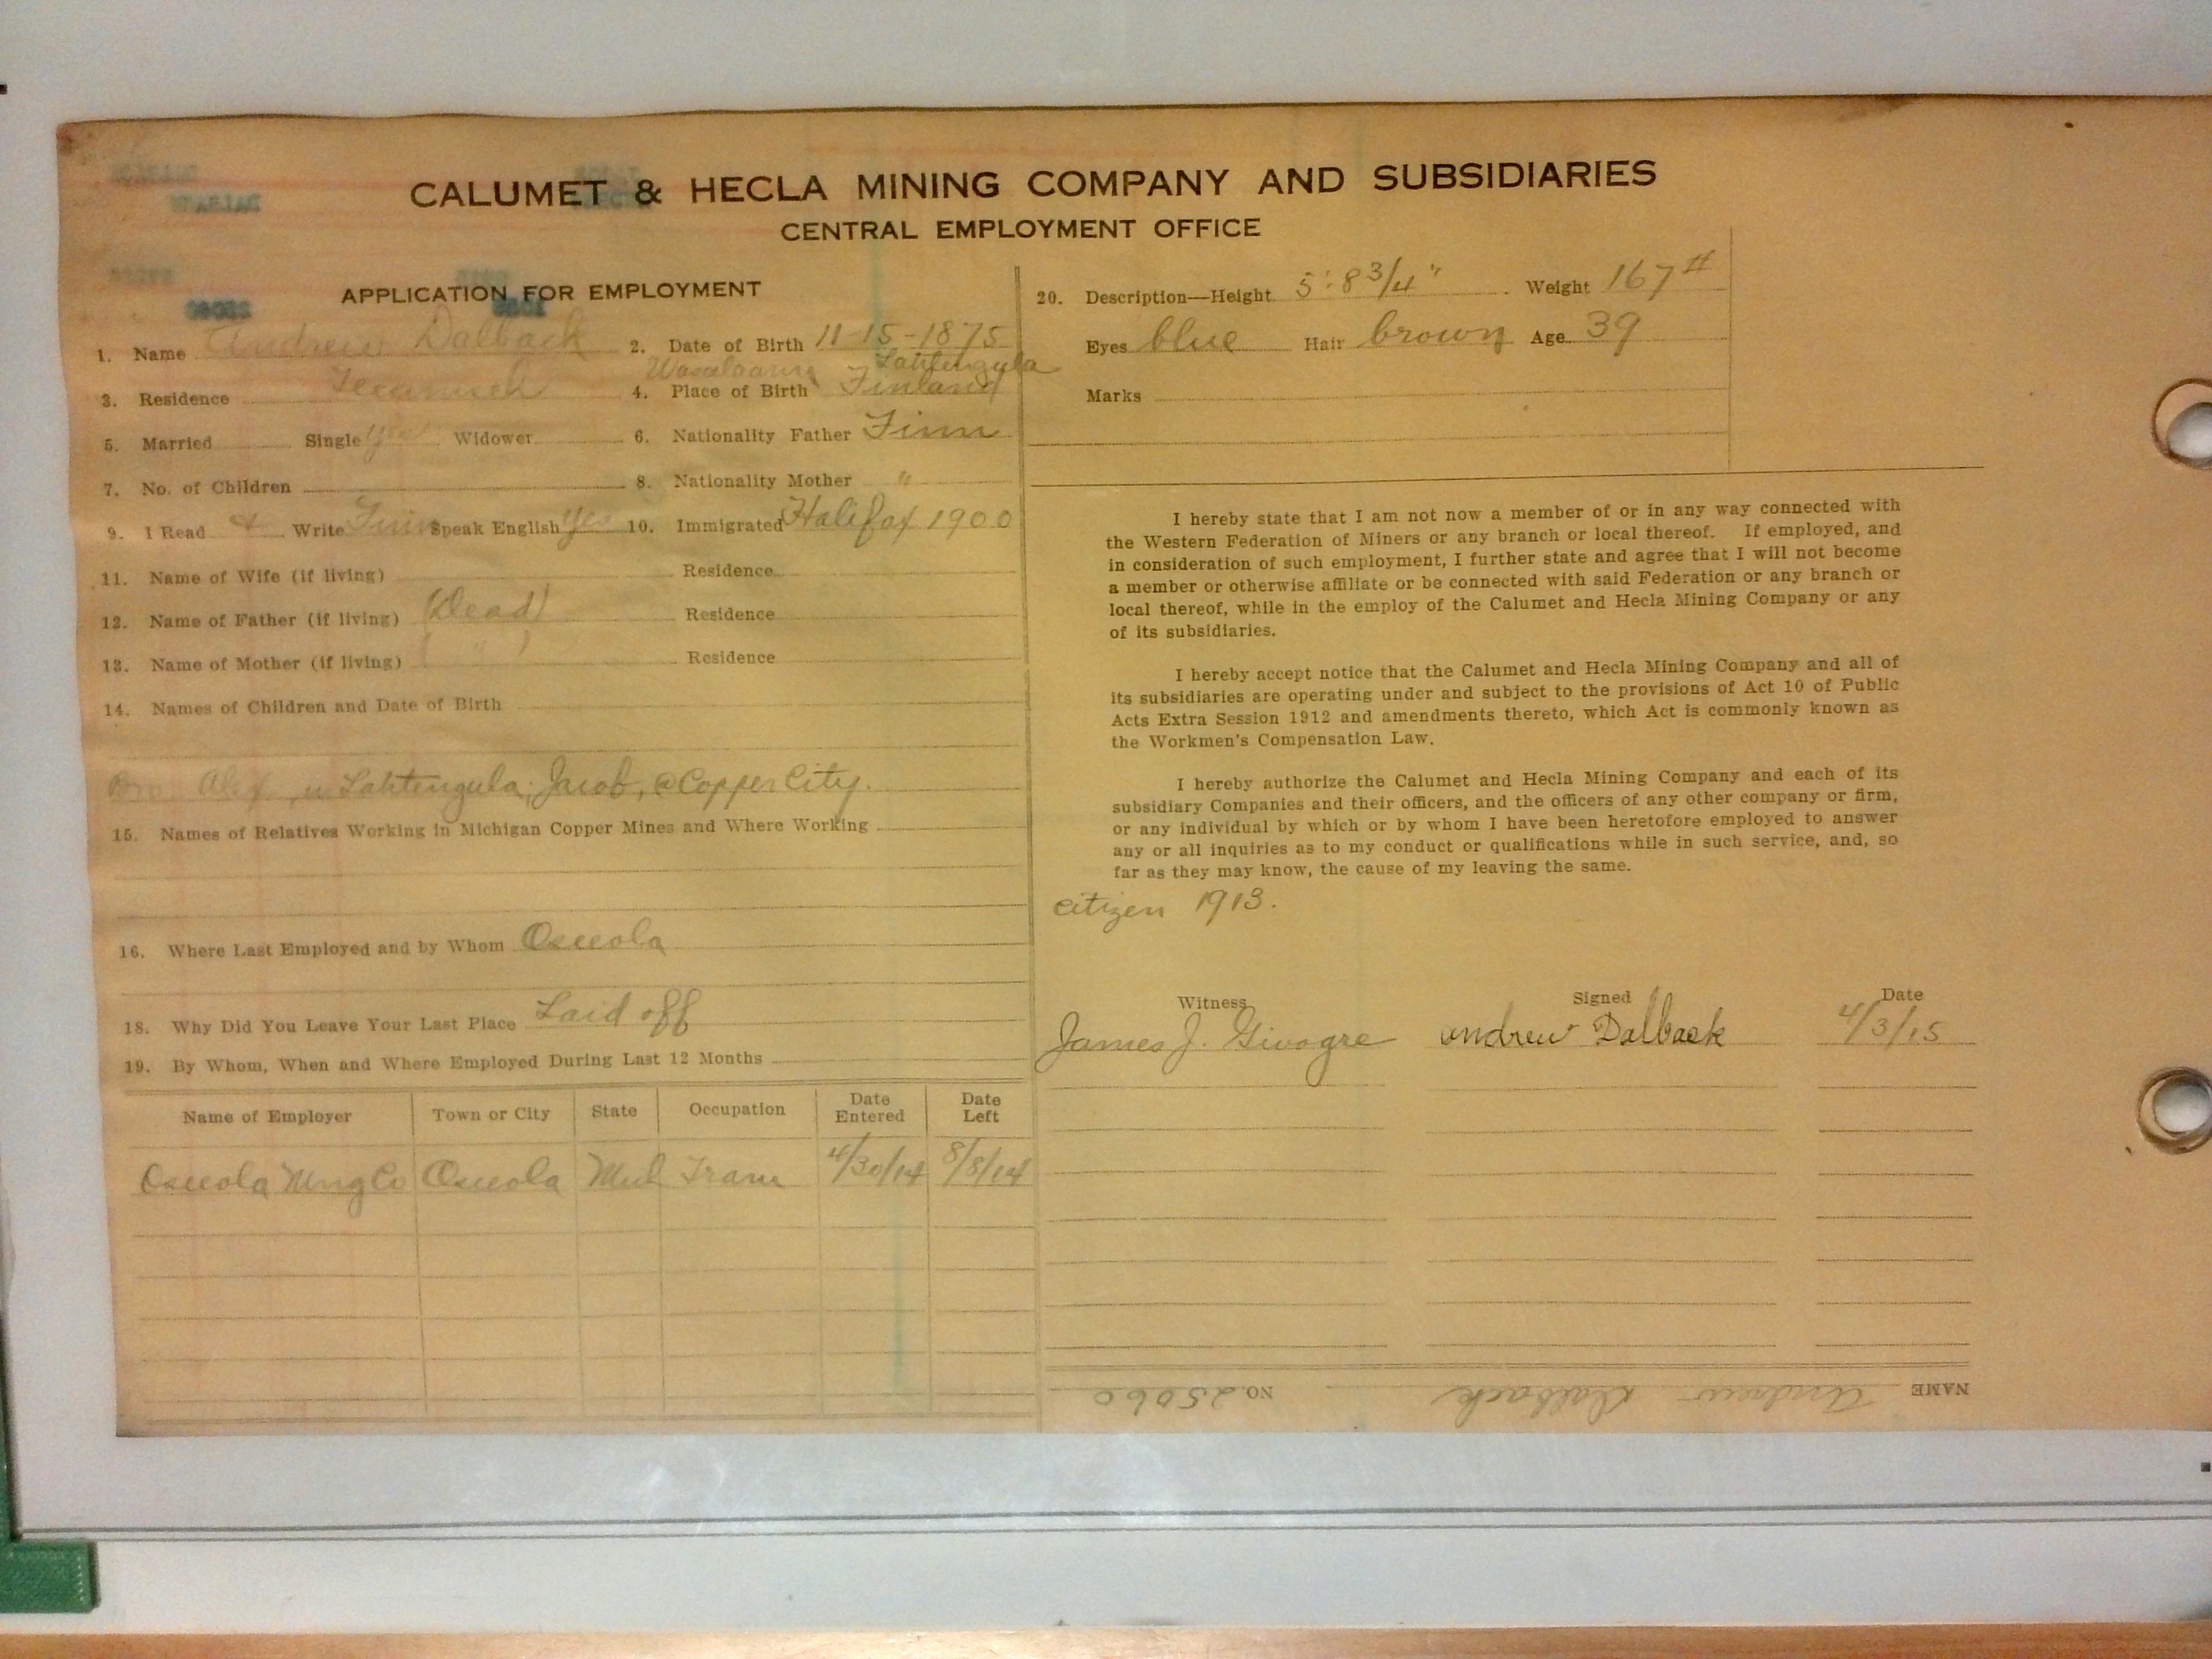 CALUMET & HECLA MINING COMPANY AND SUBSIDIARIES
CENTRAL EMPLOYMENT OFFICE
APPLICATION FOR EMPLOYMENT
1. Name Andrew Dalback 2. Date of Birth 11-15-1875
3. Residence Tecumseh 4. Place of Birth Lahtengula Finland
5. Married Single Yes Widower 6. Nationality Father Finn
7. No. of Children 8. Nationality Mother "
9. I Read & Write Finn Speak English Yes 10. Immigrated Halifax 1900
11. Name of Wife (if living) Residence
12. Name of Father (if living) (Dead) Residence
13. Name of Mother (if living) ( " ) Residence
14. Names of Children and Date of Birth
Bro Alex, in Lahtengula; Jacob, @ Copper City.
15. Names of Relatives Working in Michigan Copper Mines and Where Working
16. Where Last Employed and by Whom Osceola
18. Why Did You Leave Your Last Place Laid off
19. By Whom, When and Where Employed During Last 12 Months
Name of Employer Town or City State Occupation Date Entered Date Left
Osceola Mng Co Osceola Mich Tram 4/30/14 8/8/14
20. Description—Height 5' 8 3/4" Weight 167 #
Eyes blue Hair brown Age 39
Marks
I hereby state that I am not now a member of or in any way connected with
the Western Federation of Miners or any branch or local thereof. If employed, and
in consideration of such employment, I further state and agree that I will not become
a member or otherwise affiliate or be connected with said Federation or any branch or
local thereof, while in the employ of the Calumet and Hecla Mining Company or any
of its subsidiaries.
I hereby accept notice that the Calumet and Hecla Mining Company and all of
its subsidiaries are operating under and subject to the provisions of Act 10 of Public
Acts Extra Session 1912 and amendments thereto, which Act is commonly known as
the Workmen's Compensation Law.
I hereby authorize the Calumet and Hecla Mining Company and each of its
subsidiary Companies and their officers, and the officers of any other company or firm,
or any individual by which or by whom I have been heretofore employed to answer
any or all inquiries as to my conduct or qualifications while in such service, and, so
far as they may know, the cause of my leaving the same.
citizen 1913.
Witness Signed Date
James J. Andrew Dalback 4/3/15
NAME Andrew Dalback NO. 25060